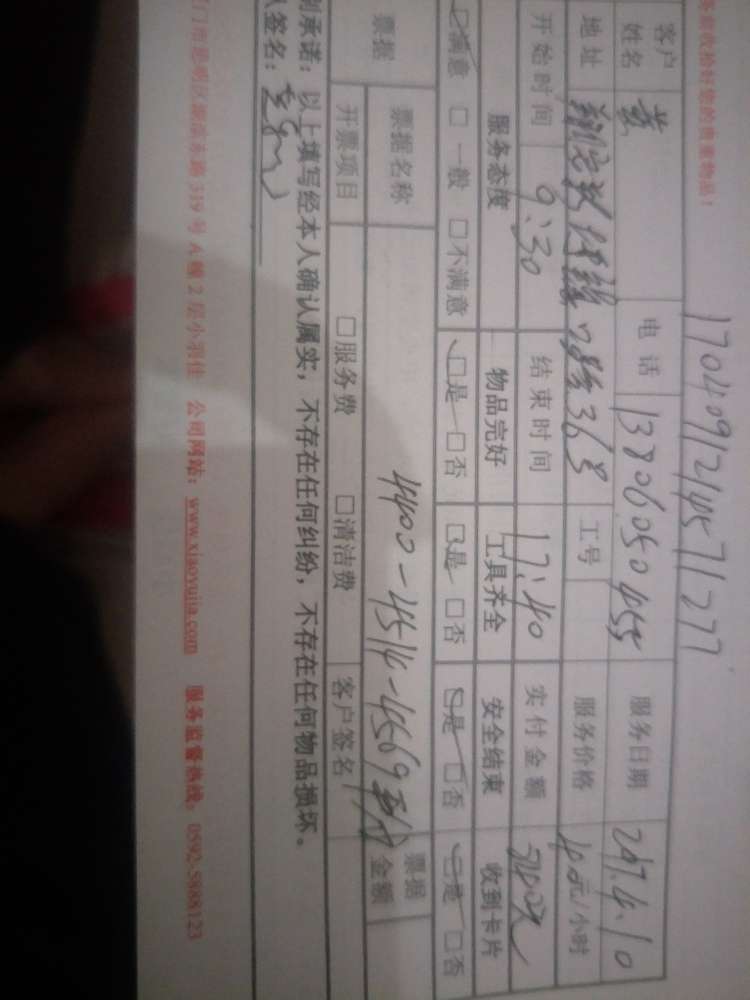 务前收拾好您的贵重物品！
17040912145711277
客户姓名 黄 电话 13806050455 服务日期 2017.4.10
地址 工号 服务价格 40元/小时
开始时间 9:30 结束时间 17:40 实付金额
服务态度 物品完好 工具齐全 安全结束 收到卡片
☑满意 □一般 □不满意 ☑是 □否 ☑是 □否 ☑是 □否 ☑是 □否
票据 票据名称 4400-4514-4569 票据金额
开票项目 □服务费 □清洁费 客户签名
承诺：以上填写经本人确认属实，不存在任何纠纷，不存在任何物品损坏。
签名：
门市思明区 319号A幢2层小羽佳 公司网站：www.xiaoyujia.com 服务监督热线：0592-5888123